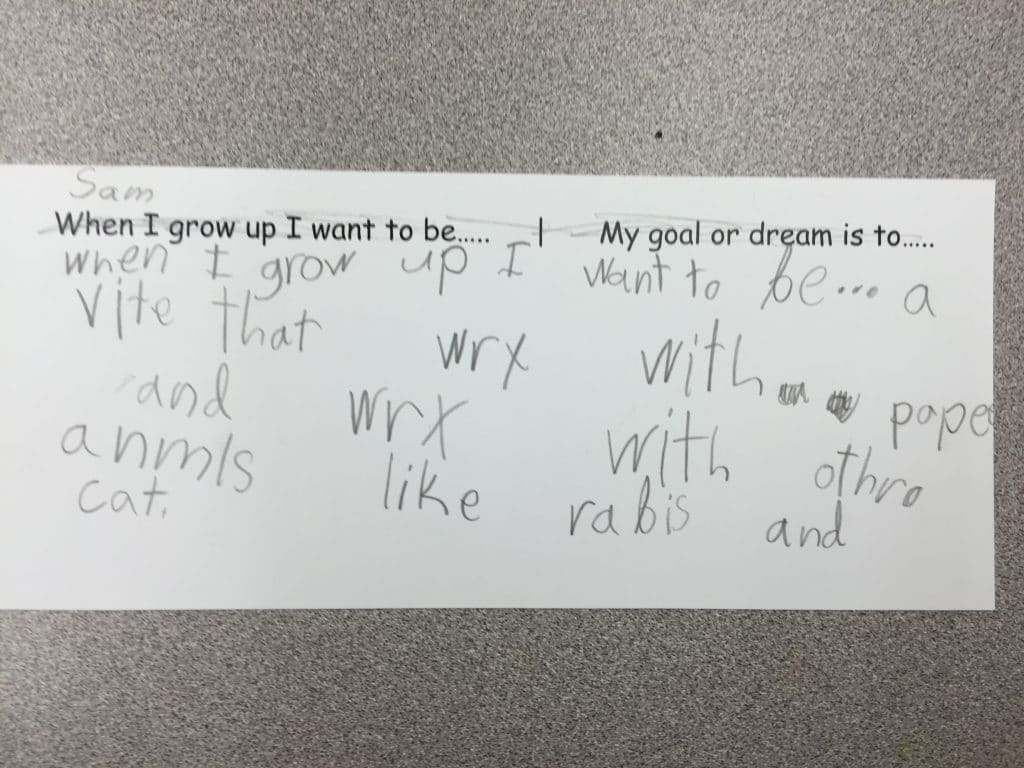 Sam
When I grow up I want to be..... | My goal or dream is to.....
when I grow up I want to be... a
vite that wrx with pope
and wrx with othro
anmls like rabis and
cat.